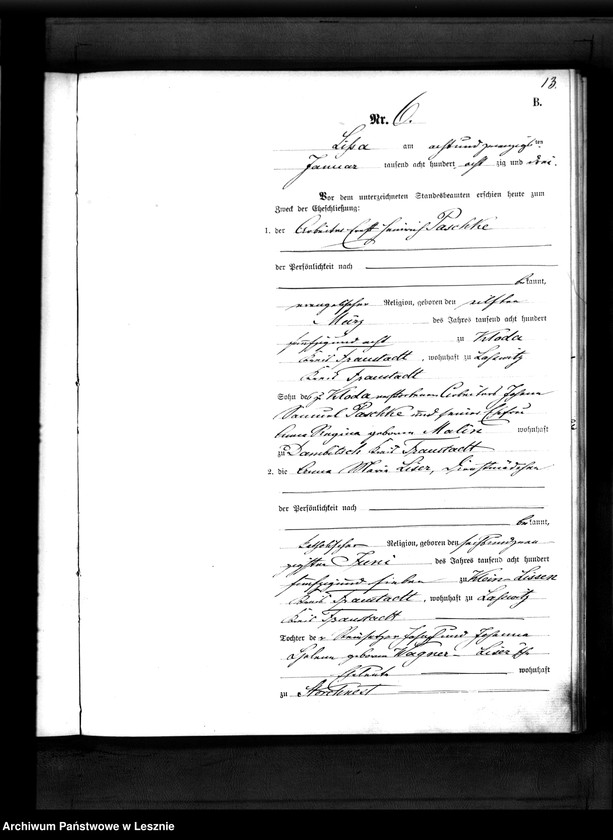 13.
B.
Nr. 6.
Lissa am achtundzwanzigsten
Januar tausend acht hundert achtzig und drei.
Vor dem unterzeichneten Standesbeamten erschien heute zum
Zweck der Eheschließung:
1. der Arbeiter Ernst Heinrich Paschke
der Persönlichkeit nach
bekannt,
evangelischer Religion, geboren den elften
März des Jahres tausend acht hundert
fünfzig und acht zu Kloda
Kreis Fraustadt, wohnhaft zu Laßwitz
Kreis Fraustadt
Sohn des zu Kloda verstorbenen Arbeiters Johann
Samuel Paschke und seiner Ehefrau
Anna Regina geborenen wohnhaft
zu Dambitsch Kreis Fraustadt
2. die Anna Maria Liser, Dienstmädchen
der Persönlichkeit nach
bekannt,
katholischer Religion, geboren den sechsundzwan
zigsten Juni des Jahres tausend acht hundert
fünfzig und sieben zu Klein-Lissen
Kreis Fraustadt, wohnhaft zu Laßwitz
Kreis Fraustadt
Tochter der Josef und Johanna
geborene Wagner- Liser
Eheleute wohnhaft
zu Storchnest
Archiwum Państwowe w Lesznie